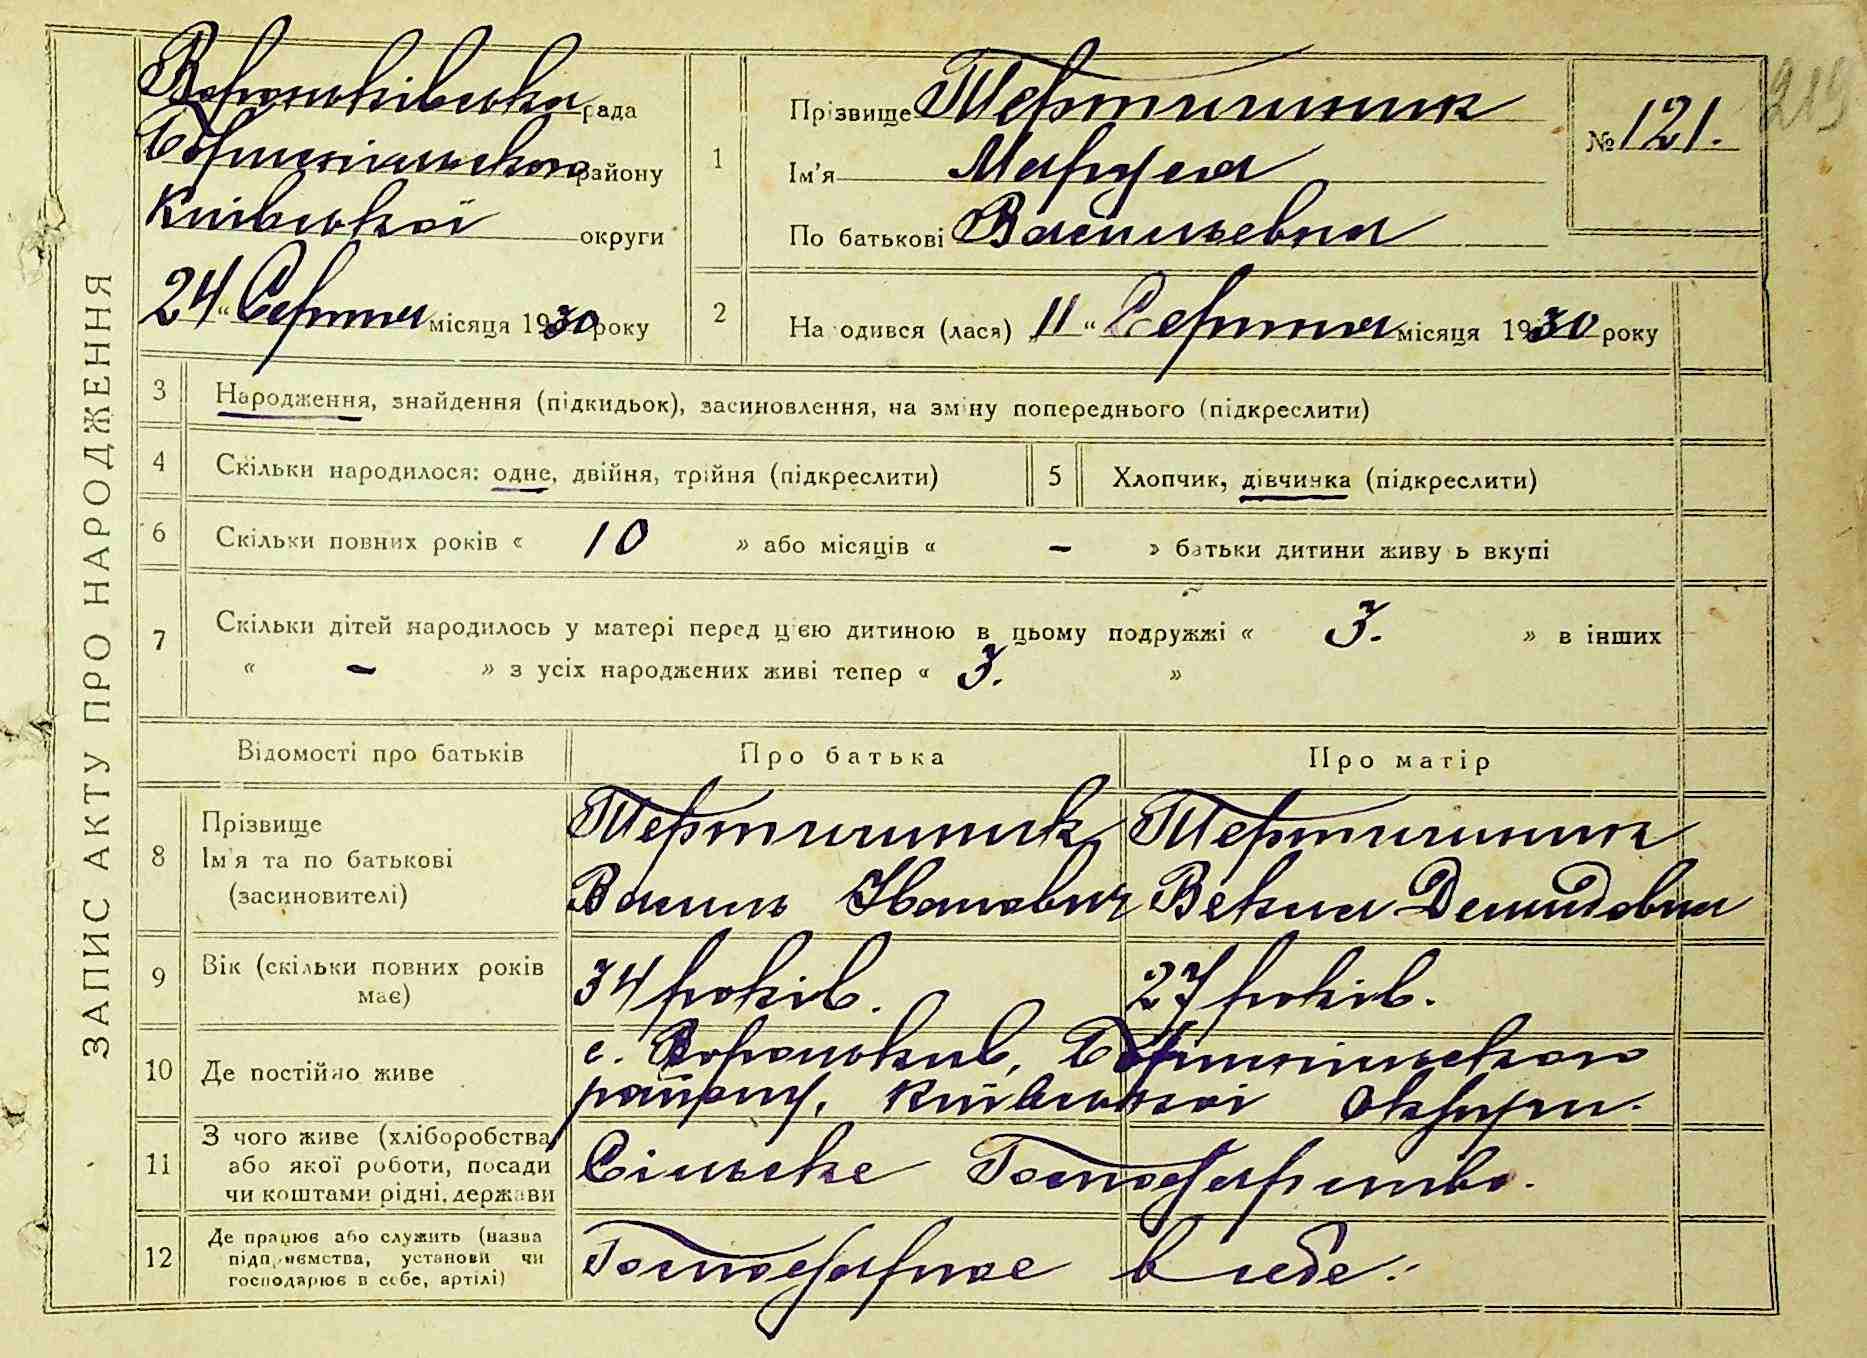 ЗАПИС АКТУ ПРО НАРОДЖЕННЯ
Вороньківська рада
Бориспільского району
Київської округи
24 " Серпня місяця 1930 року
1
Прізвище Тертишник
Ім'я Маруся
По батькові Васильевна
№ 121.
219
2
На одився (лася) 11 " Серпня місяця 1930 року
3 Народження, знайдення (підкидьок), засиновлення, на зміну попереднього (підкреслити)
4 Скільки народилося: одне, двійня, трійня (підкреслити) 5 Хлопчик, дівчинка (підкреслити)
6 Скільки повних років « 10 » або місяців « - » батьки дитини живу ь вкупі
7 Скільки дітей народилось у матері перед цією дитиною в цьому подружжі « 3. » в інших
« - » з усіх народжених живі тепер « 3. »
Відомості про батьків Про батька Про матір
8 Прізвище
Ім'я та по батькові
(засиновителі)
Тертишник
Василь Іванович
Тертишник
Векла Демидовна
9 Вік (скільки повних років
має)
34 років. 27 років.
10 Де постійно живе
с. Вороньків, Бориспільского
району, Київської Округи.
11 З чого живе (хліборобства,
або якої роботи, посади
чи коштами рідні, держави
Сільске Господарство.
12 Де працює або служить (назва
підприємства, установи чи
господарює в себе, артілі)
Господарює в себе.